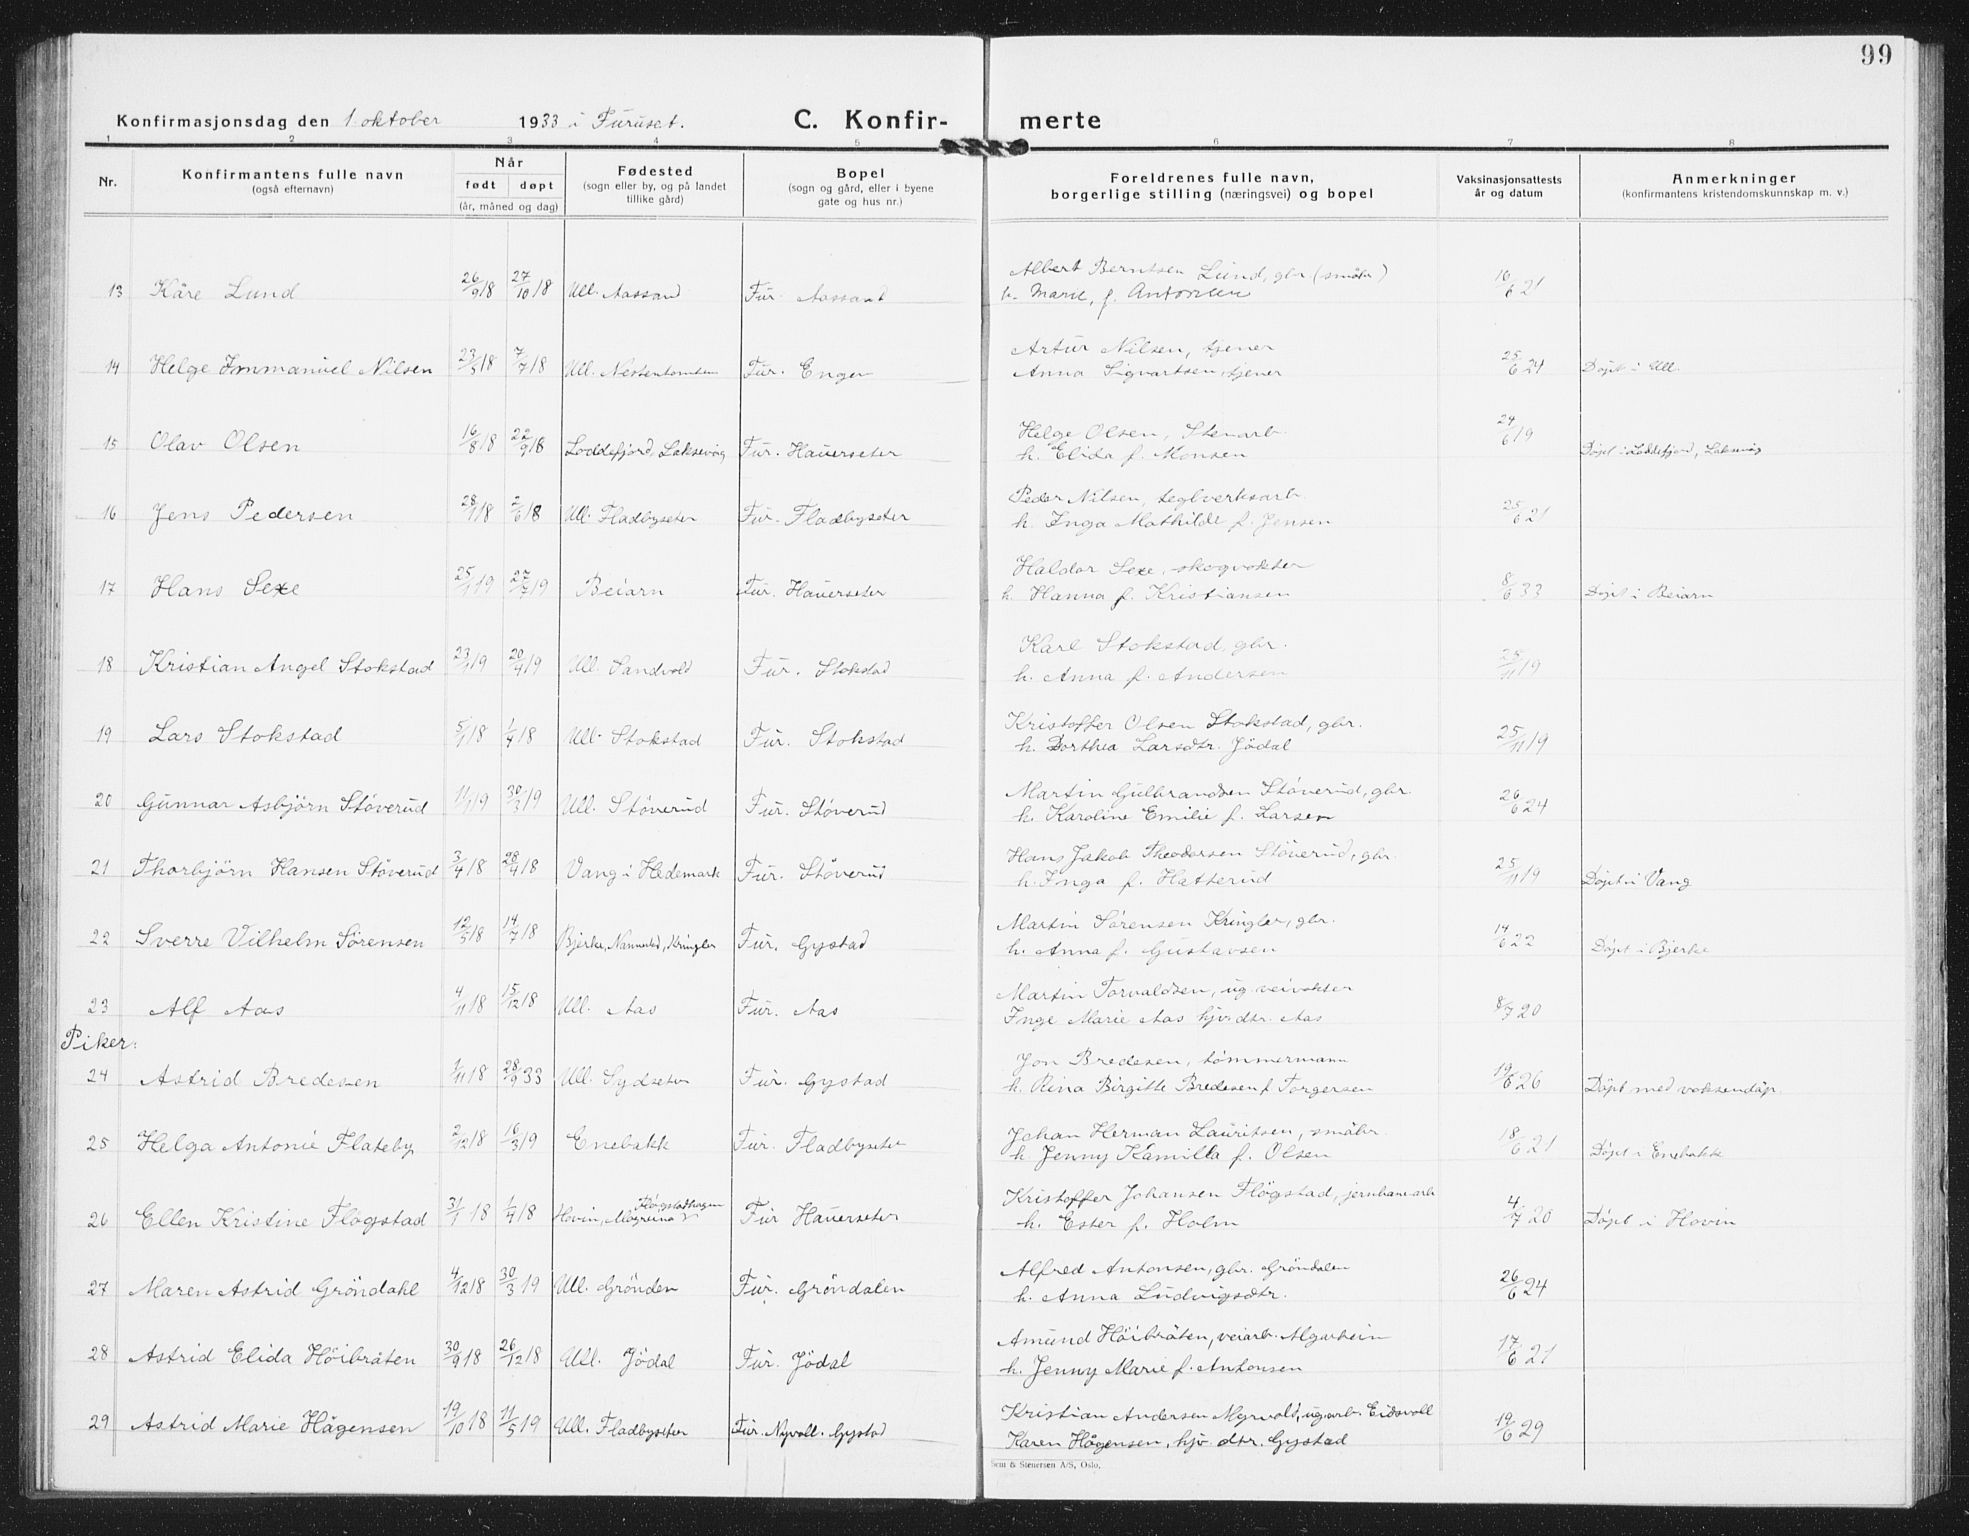 99
Konfirmasjonsdag den 1. oktober 1933 i Furuset. C. Konfir- merte
1 2 3 4 5 6 7 8
Nr. Konfirmantens fulle navn (også efternavn) Når født døpt (år, måned og dag) Fødested (sogn eller by, og på landet tillike gård) Bopel (sogn og gård, eller i byene gate og hus nr.) Foreldrenes fulle navn, borgerlige stilling (næringsvei) og bopel Vaksinasjonsattests år og datum Anmerkninger (konfirmantens kristendomskunnskap m. v.)
Albert Berntsen Lund, gbr. (småbr)
13 Kåre Lund 26/9 18 27/10 18 Ull. Aassand Fur. Aassand h. Marie, f. Antonsen 16/6 21
Artur Nilsen, tjener
14 Helge Immanuel Nilsen 23/5 18 7/7 18 Ull. Fur. Enger Anna Sigvartsen, tjener 25/6 24 Døpt i Ull.
Helge Olsen, Stenarb.
15 Olav Olsen 16/8 18 22/9 18 Loddefjord, Laksevåg Fur. Hauerseter h. Elida f. Monsen 24/6 19 Døpt i Loddefjord, Laksevåg
Peder Nilsen, teglverksarb.
16 Jens Pedersen 28/1 18 2/6 18 Ull. Fladbyseter Fur. Fladbyseter h. Inga Mathilde f. Jensen 25/6 21
Haldor Sexe, skogvokter
17 Hans Sexe 25/1 19 27/7 19 Beiarn Fur. Hauerseter h. Hanna f. Kristiansen 8/6 33 Døpt i Beiarn
Karl Stokstad, gbr.
18 Kristian Angel Stokstad 23/1 19 20/4 19 Ull. Sandvold Fur. Stokstad h. Anna f. Andersen 25/11 19
Kristoffer Olsen Stokstad, gbr.
19 Lars Stokstad 5/1 18 1/4 18 Ull. Stokstad Fur. Stokstad h. Dorthea Larsdtr. Jödal 25/11 19
Martin Gulbrandsen Støverud, gbr.
20 Gunnar Asbjörn Støverud 11/1 19 30/3 19 Ull. Støverud Fur. Støverud h. Karoline Emilie f. Larsen 26/6 24
Hans Jakob Theodorsen Støverud, gbr.
21 Thorbjörn Hansen Støverud 3/4 18 28/4 18 Vang i Hedemark Fur. Støverud h. Inga f. Hatterud 25/11 19 Døpt i Vang
Martin Sørensen Kringler, gbr.
22 Sverre Vilhelm Sørensen 12/5 18 14/7 18 Bjerke, Nannestad, Kringler Fur. Gystad h. Anna f. Gustavsen 14/6 22 Døpt i Bjerke
Martin Torvaldsen, ug. veivokter
23 Alf Aas 4/11 18 15/12 18 Ull. Aas Fur. Aas Inge Marie Aas hjv. dtr. Aas 8/7 20
Piker:
Jon Bredesen, tømmermann
24 Astrid Bredesen 1/11 18 28/9 33 Ull. Sydseter Fur. Gystad h. Rina Birgitte Bredesen f Torgersen 19/6 26 Døpt med voksendåp.
Johan Herman Lauritsen, småbr.
25 Helga Antonie Flateby 2/12 18 16/3 19 Enebakk Fur. Fladbyseter h. Jenny Kamilla f. Olsen 18/6 21 Døpt i Enebakk
Kristoffer Johansen Fløgstad, jernbanearb
26 Ellen Kristine Fløgstad 31/1 18 1/4 18 Hovin, Mogreina Fløgstadhagen Fur Hauerseter h. Ester f. Holm 4/7 20 Døpt i Hovin
Alfred Antonsen, gbr. Gröndalen
27 Maren Astrid Gröndahl 4/12 18 30/3 19 Ull. Grönden Fur. Gröndalen h. Anna Ludvigsdtr. 26/6 24
Amund Höibråten, veiarb. Algarheim
28 Astrid Elida Höibråten 30/9 18 26/12 18 Ull. Jödal Fur. Jödal h. Jenny Marie f. Antonsen 17/6 21
Kristian Andersen Myrvold, ug. arb. Eidsvoll
29 Astrid Marie Hågensen 19/10 18 11/5 19 Ull. Fladbyseter Fur. Nyvoll. Gystad Karen Hågensen, hjv. dtr. Gystad 19/6 29
Sem & Stenersen A/S, Oslo.